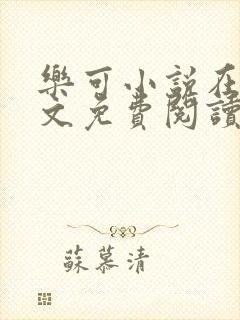 樂可小説在
文免費閱讀
蘇慕清